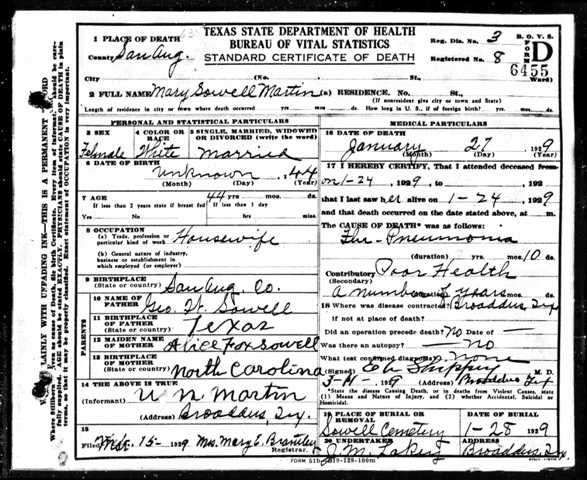 TEXAS STATE DEPARTMENT OF HEALTH
BUREAU OF VITAL STATISTICS
STANDARD CERTIFICATE OF DEATH
Reg. Dis. No. 3
Registered No. 8
B. O. V. S.
FORM D
6455
Ward)
1 PLACE OF DEATH
County San Aug.
City (No. St.,
2 FULL NAME Mary Sowell Martin (a) RESIDENCE. No. St.,
(If nonresident give city or town and State)
Length of residence in city or town where death occurred yrs. mos. ds. How long in U. S., if of foreign birth? yrs. mos. ds.
PERSONAL AND STATISTICAL PARTICULARS
3 SEX
Female
4 COLOR OR RACE
White
5 SINGLE, MARRIED, WIDOWED OR DIVORCED (write the word)
Married
6 DATE OF BIRTH
unknown, 44
(Month) (Day) (Year)
7 AGE 44 yrs. mos. ds.
If less than 2 years state if breast fed If less than 1 day
Yes No hrs. min.
8 OCCUPATION
(a) Trade, profession or particular kind of work Housewife
(b) General nature of industry, business or establishment in which employed (or employer)
9 BIRTHPLACE
(State or country) San Aug. Co.
PARENTS
10 NAME OF FATHER Geo. W. Sowell
11 BIRTHPLACE OF FATHER
(State or country) Texas
12 MAIDEN NAME OF MOTHER Alice Fox Sowell
13 BIRTHPLACE OF MOTHER
(State or country) North Carolina
14 THE ABOVE IS TRUE
(Informant) U. N. Martin
(Address) Broaddus, Tex.
15
Filed Mar. 15- 1929 Mrs. Mary E. Brantley
Registrar.
MEDICAL PARTICULARS
16 DATE OF DEATH
January 27 1929
(Month) (Day) (Year)
17 I HEREBY CERTIFY, That I attended deceased from
on 1-24, 1929, to 192
that I last saw her alive on 1-24 1929
and that death occurred on the date stated above, at m.
The CAUSE OF DEATH was as follows:
Flu-Pneumonia
(duration) yrs. mos. 10 ds.
Contributory Poor Health
(Secondary)
a number of years mos. ds.
18 Where was disease contracted, Broaddus, Tex
if not at place of death?
Did an operation precede death? No Date of
Was there an autopsy? No
What test confirmed diagnosis? None
(Signed) M. D.
1929 (Address) Broaddus Tex
*State the Disease Causing Death, or in deaths from Violent Causes, state (1) Means and Nature of Injury, and (2) whether Accidental, Suicidal or Homicidal.
19 PLACE OF BURIAL OR REMOVAL
Sowell Cemetery
DATE OF BURIAL
1-28 1929
20 UNDERTAKER
J. M. Lakey
ADDRESS
Broaddus, Tex